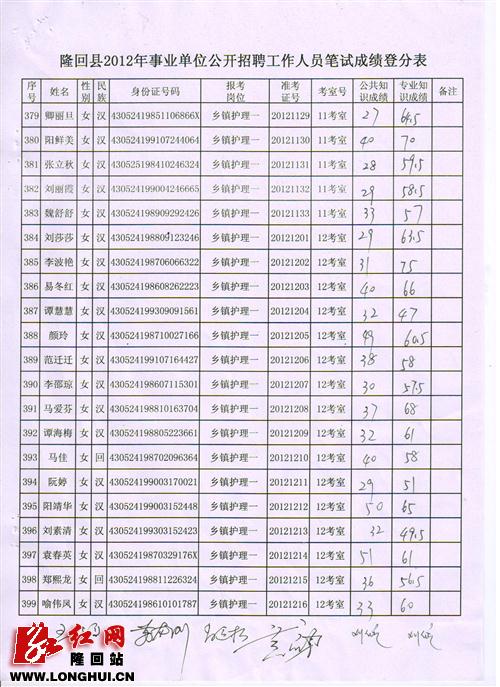 隆回县2012年事业单位公开招聘工作人员笔试成绩登分表
序号 姓名 性别 民族 身份证号码 报考岗位 准考证号 考室号 公共知识成绩 专业知识成绩 备注
379 卿丽旦 女 汉 43052419851106866X 乡镇护理一 20121129 11考室 27 64.5
380 阳鲜美 女 汉 430524199107244064 乡镇护理一 20121130 11考室 40 70
381 张立秋 女 汉 430525198410246324 乡镇护理一 20121131 11考室 28 59.5
382 刘丽霞 女 汉 430524199004246665 乡镇护理一 20121132 11考室 29 58.5
383 魏舒舒 女 汉 430524198909292426 乡镇护理一 20121133 11考室 33 57
384 刘莎莎 女 汉 430524198809123246 乡镇护理一 20121201 12考室 29 63.5
385 李波艳 女 汉 430524198706066322 乡镇护理一 20121202 12考室 31 75
386 易冬红 女 汉 430524198608262223 乡镇护理一 20121203 12考室 40 66
387 谭慧慧 女 汉 430524199309091561 乡镇护理一 20121204 12考室 32 47
388 颜玲 女 汉 430524198710027166 乡镇护理一 20121205 12考室 49 60.5
389 范迁迁 女 汉 430524199107164427 乡镇护理一 20121206 12考室 38 58
390 李邵琼 女 汉 430524198607115301 乡镇护理一 20121207 12考室 30 57.5
391 马爱芬 女 汉 430524198810163704 乡镇护理一 20121208 12考室 37 68
392 谭海梅 女 汉 430524198805223661 乡镇护理一 20121209 12考室 32 61
393 马佳 女 回 430524198702096364 乡镇护理一 20121210 12考室 40 58
394 阮婷 女 汉 430524199003170021 乡镇护理一 20121211 12考室 29 51
395 阳靖华 女 汉 430524199003152448 乡镇护理一 20121212 12考室 50 65
396 刘素清 女 汉 430524199303152423 乡镇护理一 20121213 12考室 32 49.5
397 袁春英 女 汉 43052419870329176X 乡镇护理一 20121214 12考室 51 61
398 郑熙龙 女 回 430524198811226324 乡镇护理一 20121215 12考室 36 56.5
399 喻伟凤 女 汉 430524198610101787 乡镇护理一 20121216 12考室 33 60
红网
隆回站
www.LONGHUI.CN